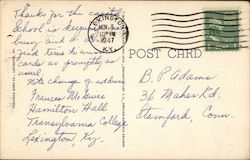 Thanks for the cards.
School is keeping
busy and I don't
find time to answer
cards as promptly as
usual.
Note change of address
Frances McGuire
Hamilton Hall
Transylvania College
Lexington, Ky.
LEXINGTON
NOV 3
1947
KY.
POST CARD
B. P. Adams
36 Maher Rd.
Stamford, Conn.